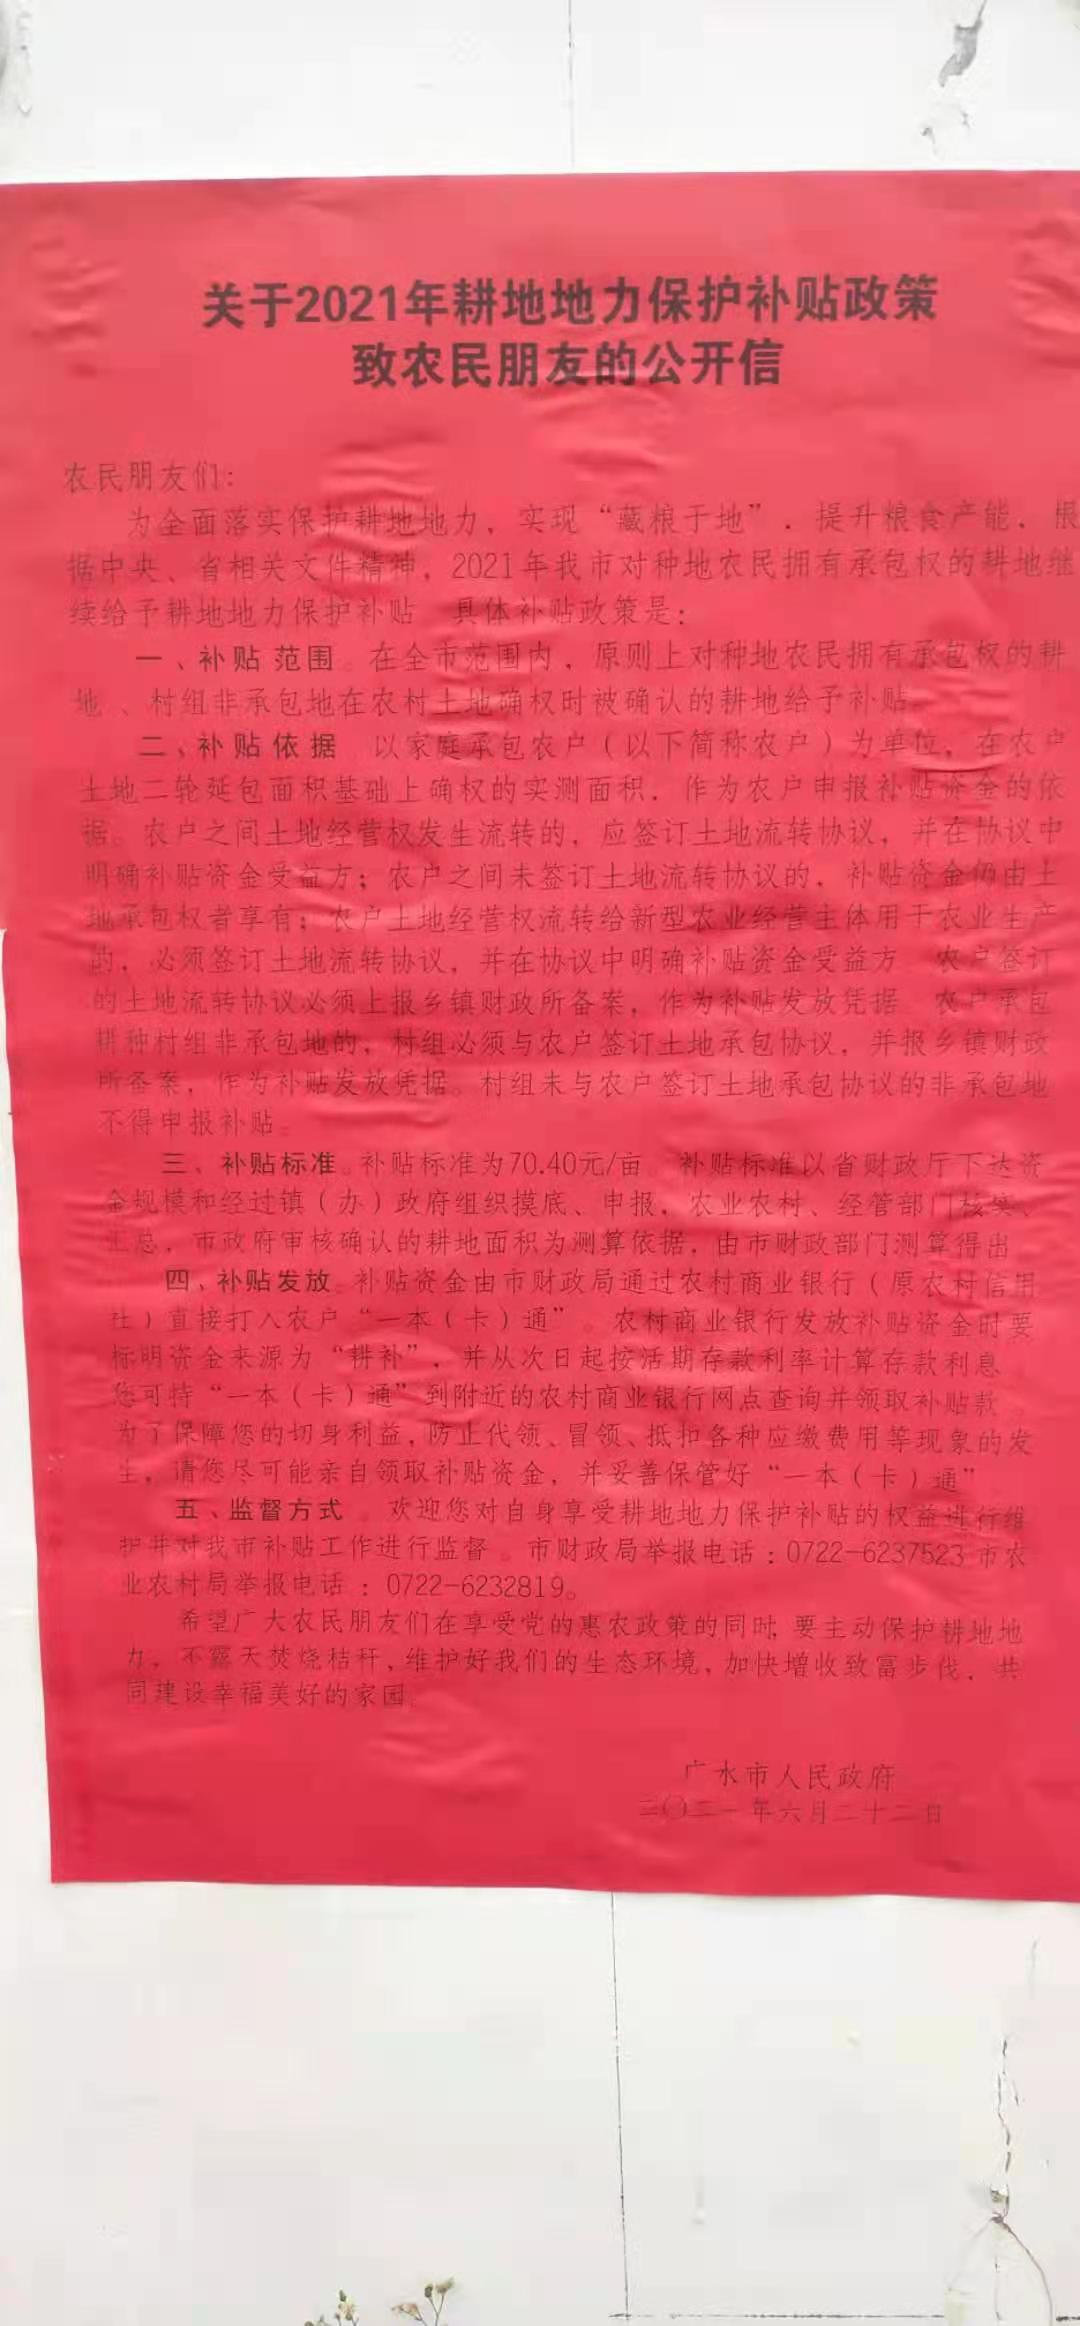 关于2021年耕地地力保护补贴政策
致农民朋友的公开信
农民朋友们：
为全面落实保护耕地地力，实现“藏粮于地”，提升粮食产能，根
据中央、省相关文件精神，2021年我市对种地农民拥有承包权的耕地继
续给予耕地地力保护补贴 具体补贴政策是：
一、补贴范围。在全市范围内，原则上对种地农民拥有承包权的耕
地、村组非承包地在农村土地确权时被确认的耕地给予补贴。
二、补贴依据 以家庭承包农户（以下简称农户）为单位，在农户
土地二轮延包面积基础上确权的实测面积，作为农户申报补贴资金的依
据。农户之间土地经营权发生流转的，应签订土地流转协议，并在协议中
明确补贴资金受益方；农户之间未签订土地流转协议的，补贴资金仍由土
地承包权者享有；农户土地经营权流转给新型农业经营主体用于农业生产
的，必须签订土地流转协议，并在协议中明确补贴资金受益方 农户签订
的土地流转协议必须上报乡镇财政所备案，作为补贴发放凭据 农户承包
耕种村组非承包地的，村组必须与农户签订土地承包协议，并报乡镇财政
所备案，作为补贴发放凭据。村组未与农户签订土地承包协议的非承包地
不得申报补贴。
三、补贴标准。补贴标准为70.40元/亩。补贴标准以省财政厅下达资
金规模和经过镇（办）政府组织摸底、申报，农业农村、经管部门核实、
汇总，市政府审核确认的耕地面积为测算依据，由市财政部门测算得出
四、补贴发放。补贴资金由市财政局通过农村商业银行（原农村信用
社）直接打入农户“一本（卡）通”。农村商业银行发放补贴资金时要
标明资金来源为“耕补”，并从次日起按活期存款利率计算存款利息
您可持“一本（卡）通”到附近的农村商业银行网点查询并领取补贴款。
为了保障您的切身利益，防止代领、冒领、抵扣各种应缴费用等现象的发
生，请您尽可能亲自领取补贴资金，并妥善保管好“一本（卡）通”
五、监督方式。欢迎您对自身享受耕地地力保护补贴的权益进行维
护并对我市补贴工作进行监督。市财政局举报电话：0722-6237523 市农
业农村局举报电话：0722-6232819。
希望广大农民朋友们在享受党的惠农政策的同时，要主动保护耕地地
力，不露天焚烧秸秆、维护好我们的生态环境，加快增收致富步伐，共
同建设幸福美好的家园。
广水市人民政府
二〇二一年六月二十二日